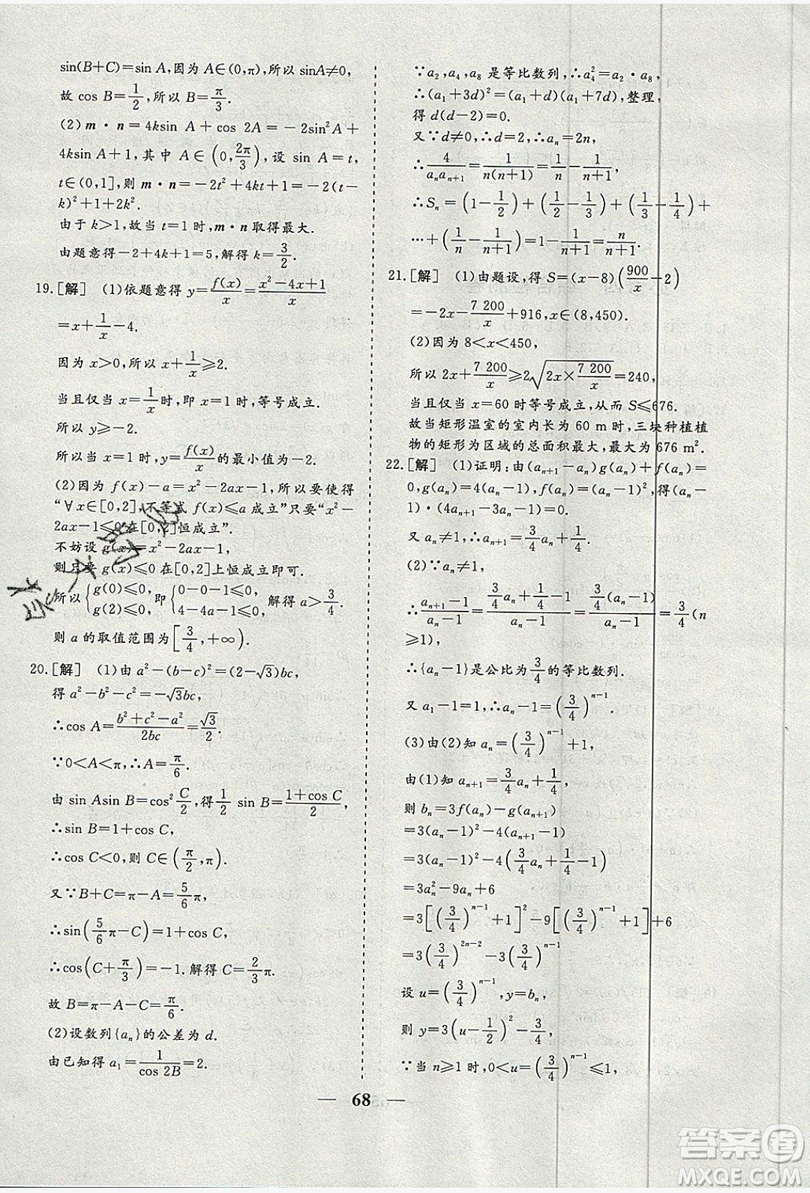 sin(B+C)=sin A,因为 A∈(0,π),所以 sinA≠0,
故 cos B=1/2,所以 B=π/3.
(2)m·n=4ksin A+cos 2A=-2sin²A+
4ksin A+1,其中 A∈(0,2π/3),设 sin A=t,
t∈(0,1],则 m·n=-2t²+4kt+1=-2(t-
k)²+1+2k².
由于 k>1,故当 t=1 时,m·n 取得最大.
由题意得-2+4k+1=5,解得 k=3/2.
19.[解] (1)依题意得 y=f(x)/x=(x²-4x+1)/x
=x+1/x-4.
因为 x>0,所以 x+1/x≥2.
当且仅当 x=1/x时,即 x=1 时,等号成立.
所以 y≥-2.
所以当 x=1 时,y=f(x)/x的最小值为-2.
(2)因为 f(x)-a=x²-2ax-1,所以要使得
“∀x∈[0,2],不等式 f(x)≤a 成立”只要“x²-
2ax-1≤0在[0,2]恒成立”.
不妨设 g(x)=x²-2ax-1,
则只要 g(x)≤0 在[0,2]恒成立即可.
所以{g(0)≤0, g(2)≤0,即{0-0-1≤0, 4-4a-1≤0,解得 a>3/4.
则 a 的取值范围为[3/4,+∞).
20.[解] (1)由 a²-(b-c)²=(2-√3)bc,
得 a²-b²-c²=-√3bc,
∴cos A=(b²+c²-a²)/2bc=√3/2.
∵0<A<π,∴A=π/6.
由 sin Asin B=cos²C/2,得1/2 sin B=(1+cos C)/2,
∴sin B=1+cos C.
∴cos C<0,则 C∈(π/2,π).
又∵B+C=π-A=5π/6,
∴sin(5/6π-C)=1+cos C,
∴cos(C+π/3)=-1.解得 C=2/3π.
故 B=π-A-C=π/6.
(2)设数列{aₙ}的公差为 d.
由已知得 a₁=1/cos 2B=2.
∵a₂,a₄,a₈ 是等比数列,∴a₄²=a₂·a₈,
∴(a₁+3d)²=(a₁+d)(a₁+7d),整理,
得 d(d-2)=0.
又∵d≠0,∴d=2,∴aₙ=2n,
∴4/aₙaₙ₊₁=1/n(n+1)=1/n-1/(n+1).
∴Sₙ=(1-1/2)+(1/2-1/3)+(1/3-1/4)+
…+(1/n-1/(n+1))=1-1/(n+1)=n/(n+1).
21.[解] (1)由题设,得 S=(x-8)(900/x-2)
=-2x-7 200/x+916,x∈(8,450).
(2)因为 8<x<450,
所以 2x+7 200/x≥2√(2x×7 200/x)=240,
当且仅当 x=60 时等号成立,从而 S≤676.
故当矩形温室的室内长为 60 m 时,三块种植植
物的矩形为区域的总面积最大,最大为 676 m².
22.[解] (1)证明:由(aₙ₊₁-aₙ)g(aₙ)+f(aₙ)=
0,g(aₙ)=4(aₙ-1),f(aₙ)=(aₙ-1)²,得(aₙ
-1)·(4aₙ₊₁-3aₙ-1)=0.
又 aₙ≠1,∴aₙ₊₁=3/4aₙ+1/4.
(2)∵aₙ≠1,
∴(aₙ₊₁-1)/(aₙ-1)=(3/4aₙ+1/4-1)/(aₙ-1)=3/4(aₙ-1)/(aₙ-1)=3/4(n
≥1),
∴{aₙ-1}是公比为3/4的等比数列.
又 a₁-1=1,∴aₙ-1=(3/4)ⁿ⁻¹.
(3)由(2)知 aₙ=(3/4)ⁿ⁻¹+1,
由(1)知 aₙ₊₁=3/4aₙ+1/4,
则 bₙ=3f(aₙ)-g(aₙ₊₁)
=3(aₙ-1)²-4(aₙ₊₁-1)
=3(aₙ-1)²-4(3/4aₙ+1/4-1)
=3aₙ²-9aₙ+6
=3[(3/4)ⁿ⁻¹+1]²-9[(3/4)ⁿ⁻¹+1]+6
=3(3/4)²ⁿ⁻²-3(3/4)ⁿ⁻¹.
设 u=(3/4)ⁿ⁻¹,y=bₙ,
则 y=3(u-1/2)²-3/4.
∵当 n≥1时,0<u=(3/4)ⁿ⁻¹≤1,
— 68 —
答案圈
MXQE.COM